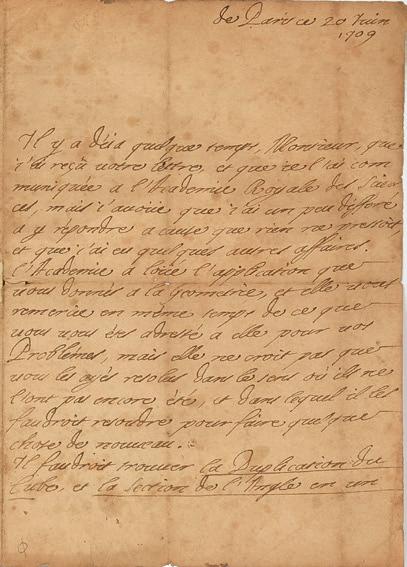 de Paris ce 20 Juin
1709
Il y a déia quelque temps, Monsieur, que
i'ai reçû votre lettre, et que ie l'ai com
muniquée a l'Academie Royale des Scien
ces, mais i'avoüe que i'ai un peu differé
a y repondre a cause que rien ne pressoit,
et que i'ai eu quelques autres affaires.
l'Academie a loüé l'application que
vous donnés a la Geometrie, et elle vous
remercie en même temps de ce que
vous vous étes adressé a elle pour vos
Problêmes, mais elle ne croit pas que
vous les ayés resolus dans le sens où ils ne
l'ont pas encore été, et dans lequel il les
faudroit resoudre pour faire quelque
chose de nouveau.
Il faudroit trouver la Duplication du
Cube, et la section de l'Angle en un